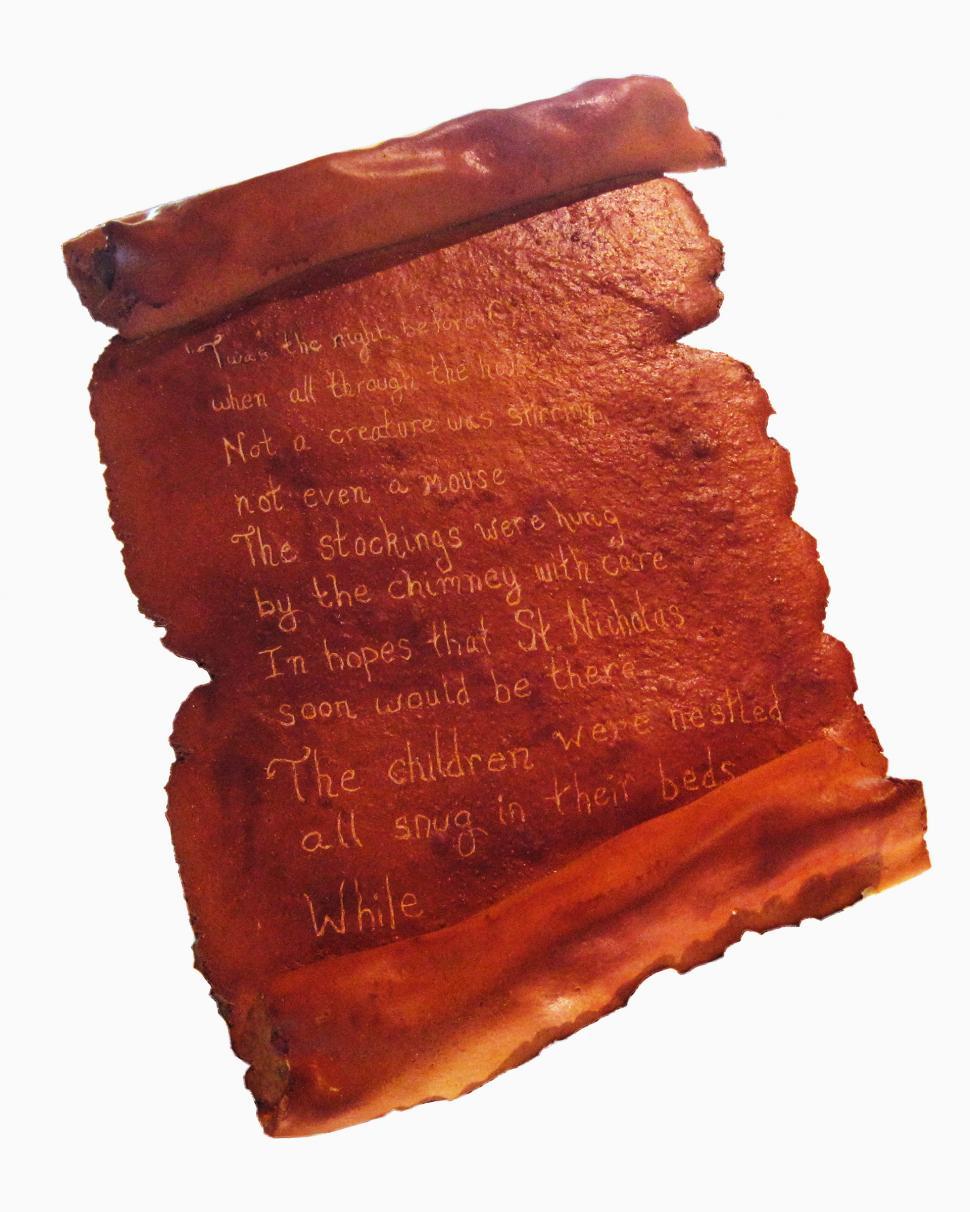 "Twas the night before
when all through the house
Not a creature was stirring,
not even a mouse
The stockings were hung
by the chimney with care
In hopes that St Nicholas
soon would be there.
The children were nestled
all snug in their beds
While